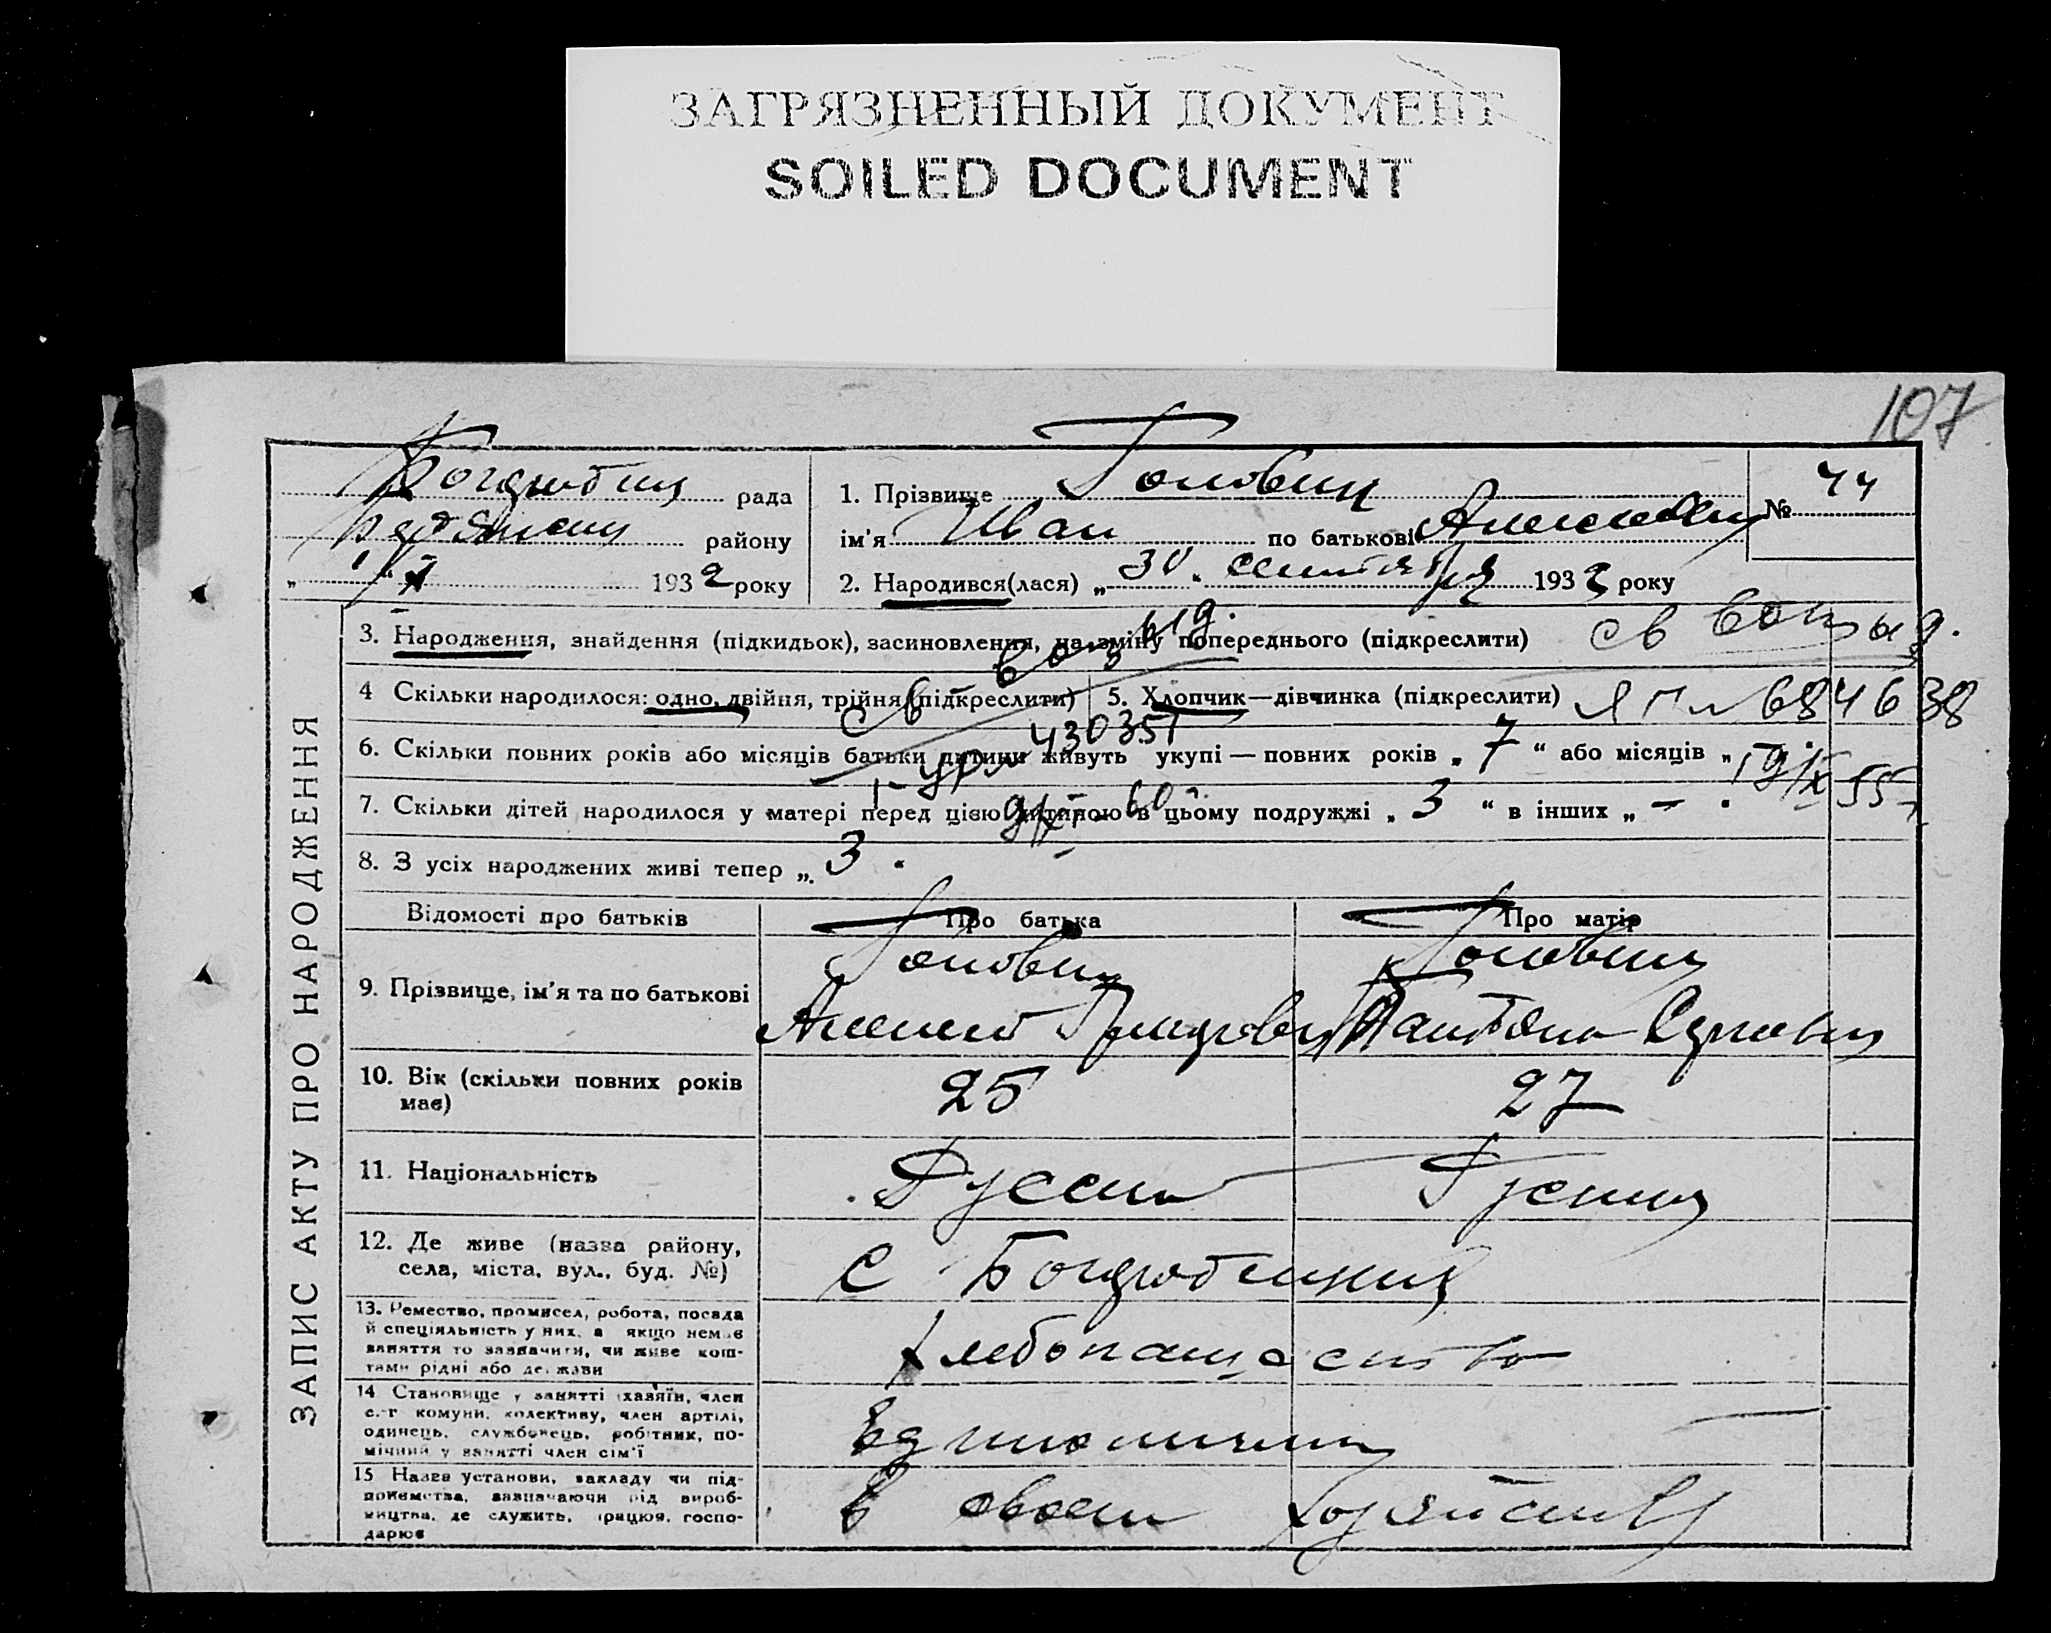 ЗАГРЯЗНЕННЫЙ ДОКУМЕНТ
SOILED DOCUMENT
107
рада
району
1932 року
1. Прізвище Головин
№ 44
ім'я Иван по батькові Алексеевич
2. Народився(лася) „30“ сентября 1932 року
ЗАПИС АКТУ ПРО НАРОДЖЕННЯ
3. Народження, знайдення (підкидьок), засиновлення, на зміну попереднього (підкреслити)
св выд.
4 Скільки народилося: одно, двійня, трійня (підкреслити)
5. Хлопчик—дівчинка (підкреслити)
684638
430351
6. Скільки повних років або місяців батьки дитини живуть укупі — повних років „7“ або місяців „ —
7. Скільки дітей народилося у матері перед цією дитиною в цьому подружжі „3“ в інших „ —
55
8. З усіх народжених живі тепер „ 3
Відомості про батьків
Про батька
Про матір
9. Прізвище, ім'я та по батькові
Головин
Алексей
Головин
10. Вік (скільки повних років має)
25
27
11. Національність
Русский
Русская
12. Де живе (назва району, села, міста, вул., буд. №)
с
13. Ремество, промисел, робота, посада й спеціяльність у них, а якщо немає заняття то зазначити, чи живе коштами рідні або держави
Хлебопашество
14 Становище у занятті (хазяїн, член с.-г комуни, колективу, член артілі, одинець, службовець, робітник, помічний у занятті член сім'ї
Единоличник
15 Назва установи, закладу чи підприємства, зазначаючи рід виробництва, де служить, працює, господарює
В своем хозяйстве